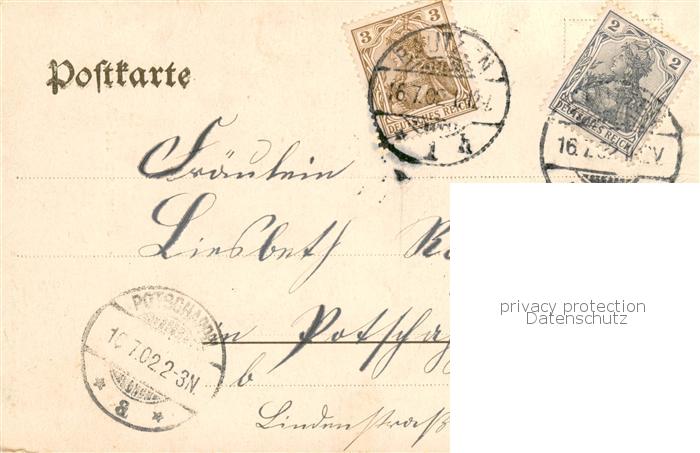 3
DEUTSCHES REICH
2
DEUTSCHES REICH
BAUTZEN
16.7.02
16.7.02
Postkarte
Fräulein
Liesbeth
in Potscha
b
Lindenstraß
POTSCHAPPEL
16.7.02.2-3N.
* a *
privacy protection
Datenschutz